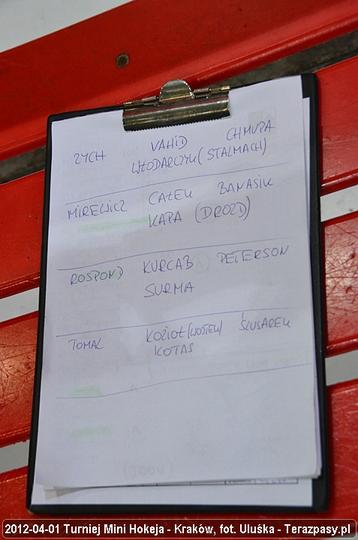 ZYCH VAHID CHMURA
WŁODARCZYK (STALMACH)
MIREWICZ CAŁEK BANASIK
KAPA (DROZD)
ROSPOND KURCAB PETERSON
SURMA
TOMAL KOZIOŁ (WOJTEK) ŚLUSAREK
KOTAS
2012-04-01 Turniej Mini Hokeja - Kraków, fot. Uluśka - Terazpasy.pl